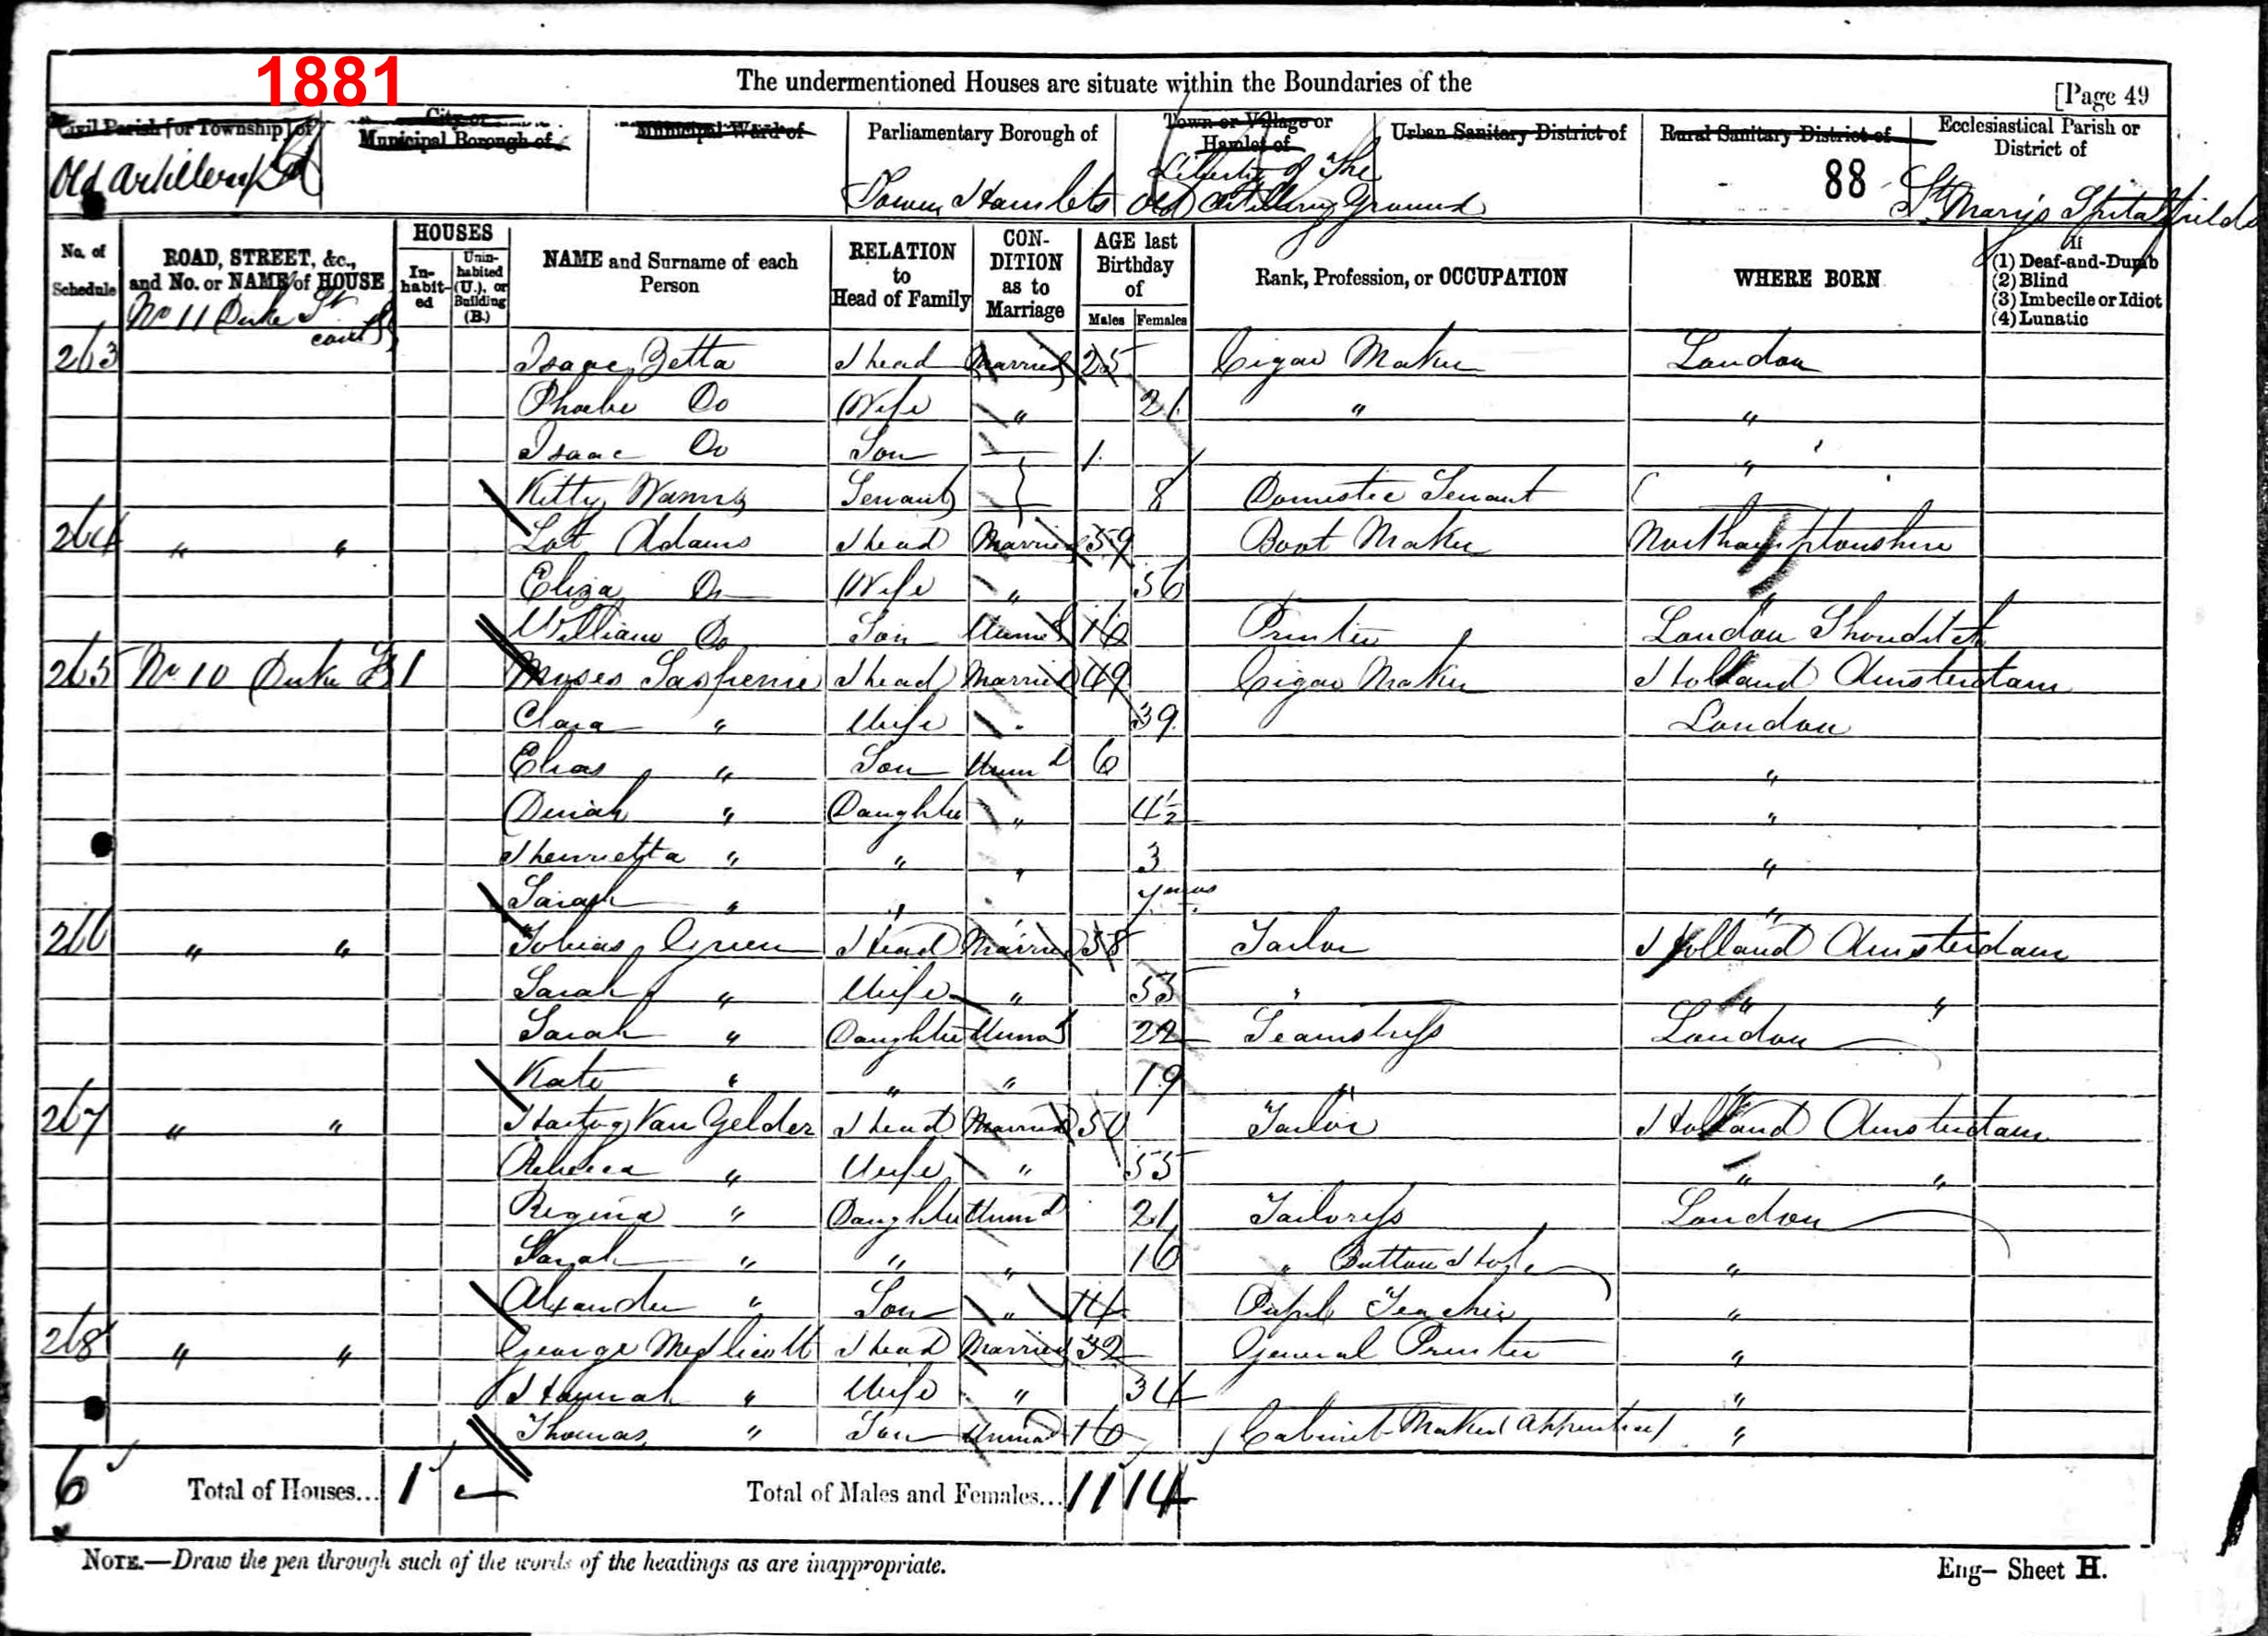 1881
The undermentioned Houses are situate within the Boundaries of the
[Page 49
Civil Parish [or Township] of
City or Municipal Borough of
Municipal Ward of
Parliamentary Borough of
Town or Village or Hamlet of
Urban Sanitary District of
Rural Sanitary District of
Ecclesiastical Parish or District of
Old Artillery Gd
Tower Hamlets
Liberty of The Old Artillery Ground
88
St Mary's Spitalfields
No. of Schedule
ROAD, STREET, &c., and No. or NAME of HOUSE
HOUSES
In-habit-ed
Unin-habited (U.), or Building (B.)
NAME and Surname of each Person
RELATION to Head of Family
CON-DITION as to Marriage
AGE last Birthday of
Males Females
Rank, Profession, or OCCUPATION
WHERE BORN
If
(1) Deaf-and-Dumb
(2) Blind
(3) Imbecile or Idiot
(4) Lunatic
No 11 Duke St
263 Isaac Zetta Head Married 25 Cigar Maker London
Phoebe Do Wife " 21 " "
Isaac Do Son 1 "
Kitty Servant 8 Domestic Servant
264 " " Lot Adams Head Married 59 Boot Maker Northamptonshire
Eliza Do Wife " 56 "
William Do Son Unmd 16 Printer London Shoreditch
265 No 10 Duke St 1 Moses Head Married 49 Cigar Maker Holland Amsterdam
Clara " Wife " 39 London
Elias " Son Unmd 6 "
Dinah " Daughter " 4½ "
Henrietta " " " 3 "
Sarah " " " 7 mos "
266 " " Tobias Green Head Married 58 Tailor Holland Amsterdam
Sarah " Wife " 55 " " "
Sarah " Daughter Unmd 22 Seamstress London
Kate " " " 19 " "
267 " " Hartog Van Gelder Head Married 50 Tailor Holland Amsterdam
Rebecca " Wife " 55 " "
Regina " Daughter Unmd 21 Tailoress London
Sarah " " " 16 " Button Hole "
Alexander " Son " 14 Pupil Teacher "
268 " " George Medlicott Head Married 32 General Printer "
Hannah " Wife " 34 "
Thomas " Son Unmd 16 Cabinet Maker (Apprentice) "
6 Total of Houses... 1 Total of Males and Females... 11 14
NOTE.—Draw the pen through such of the words of the headings as are inappropriate.
Eng— Sheet H.